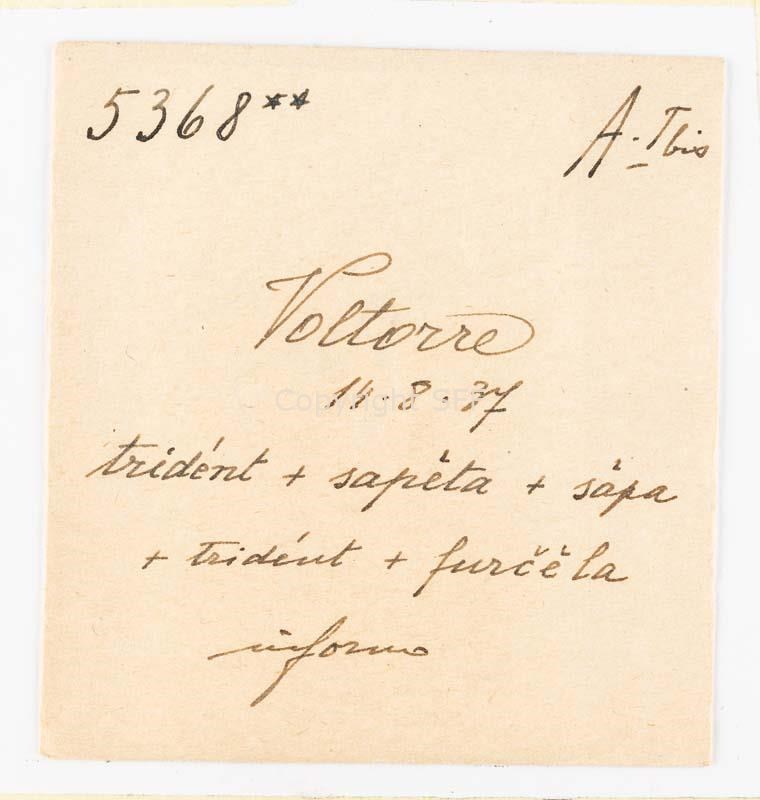 5368** A. I bis
Voltorre
14.8.37
tridént + sapĕta + săpa
+ tridént + furčĕla
Copyright